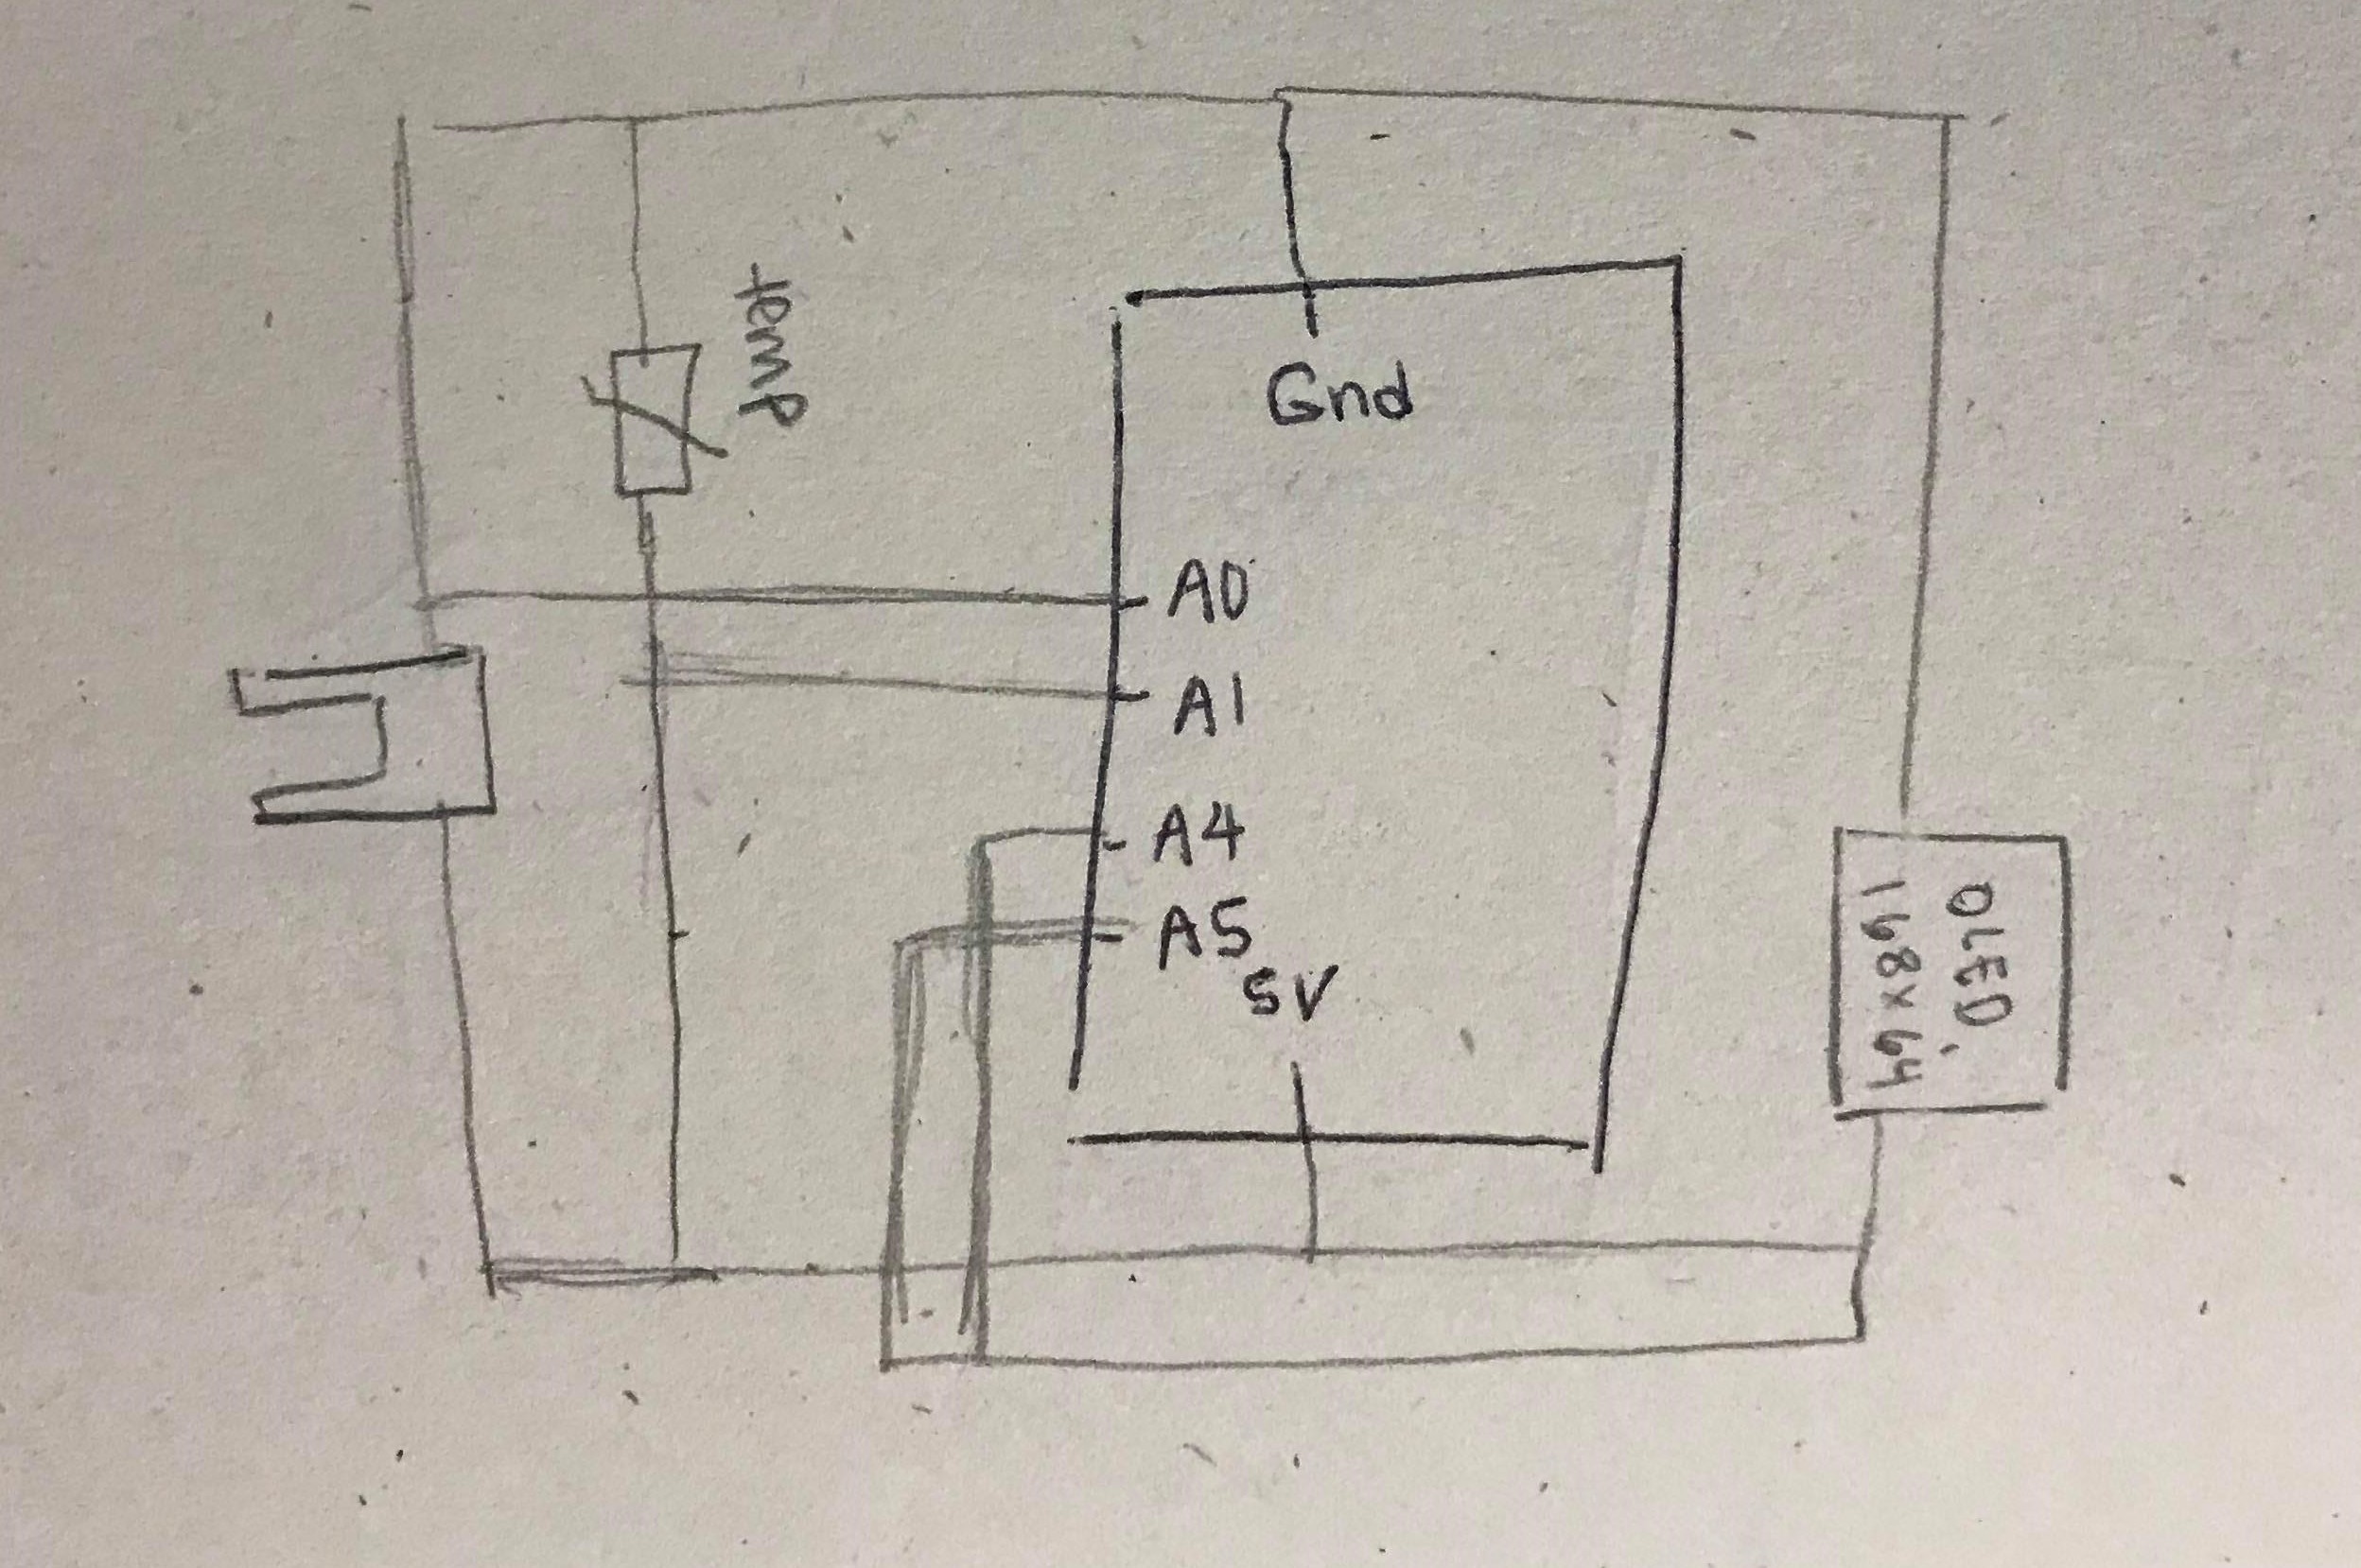 temp
Gnd
A0
A1
A4
A5
5V
OLED,
168x64